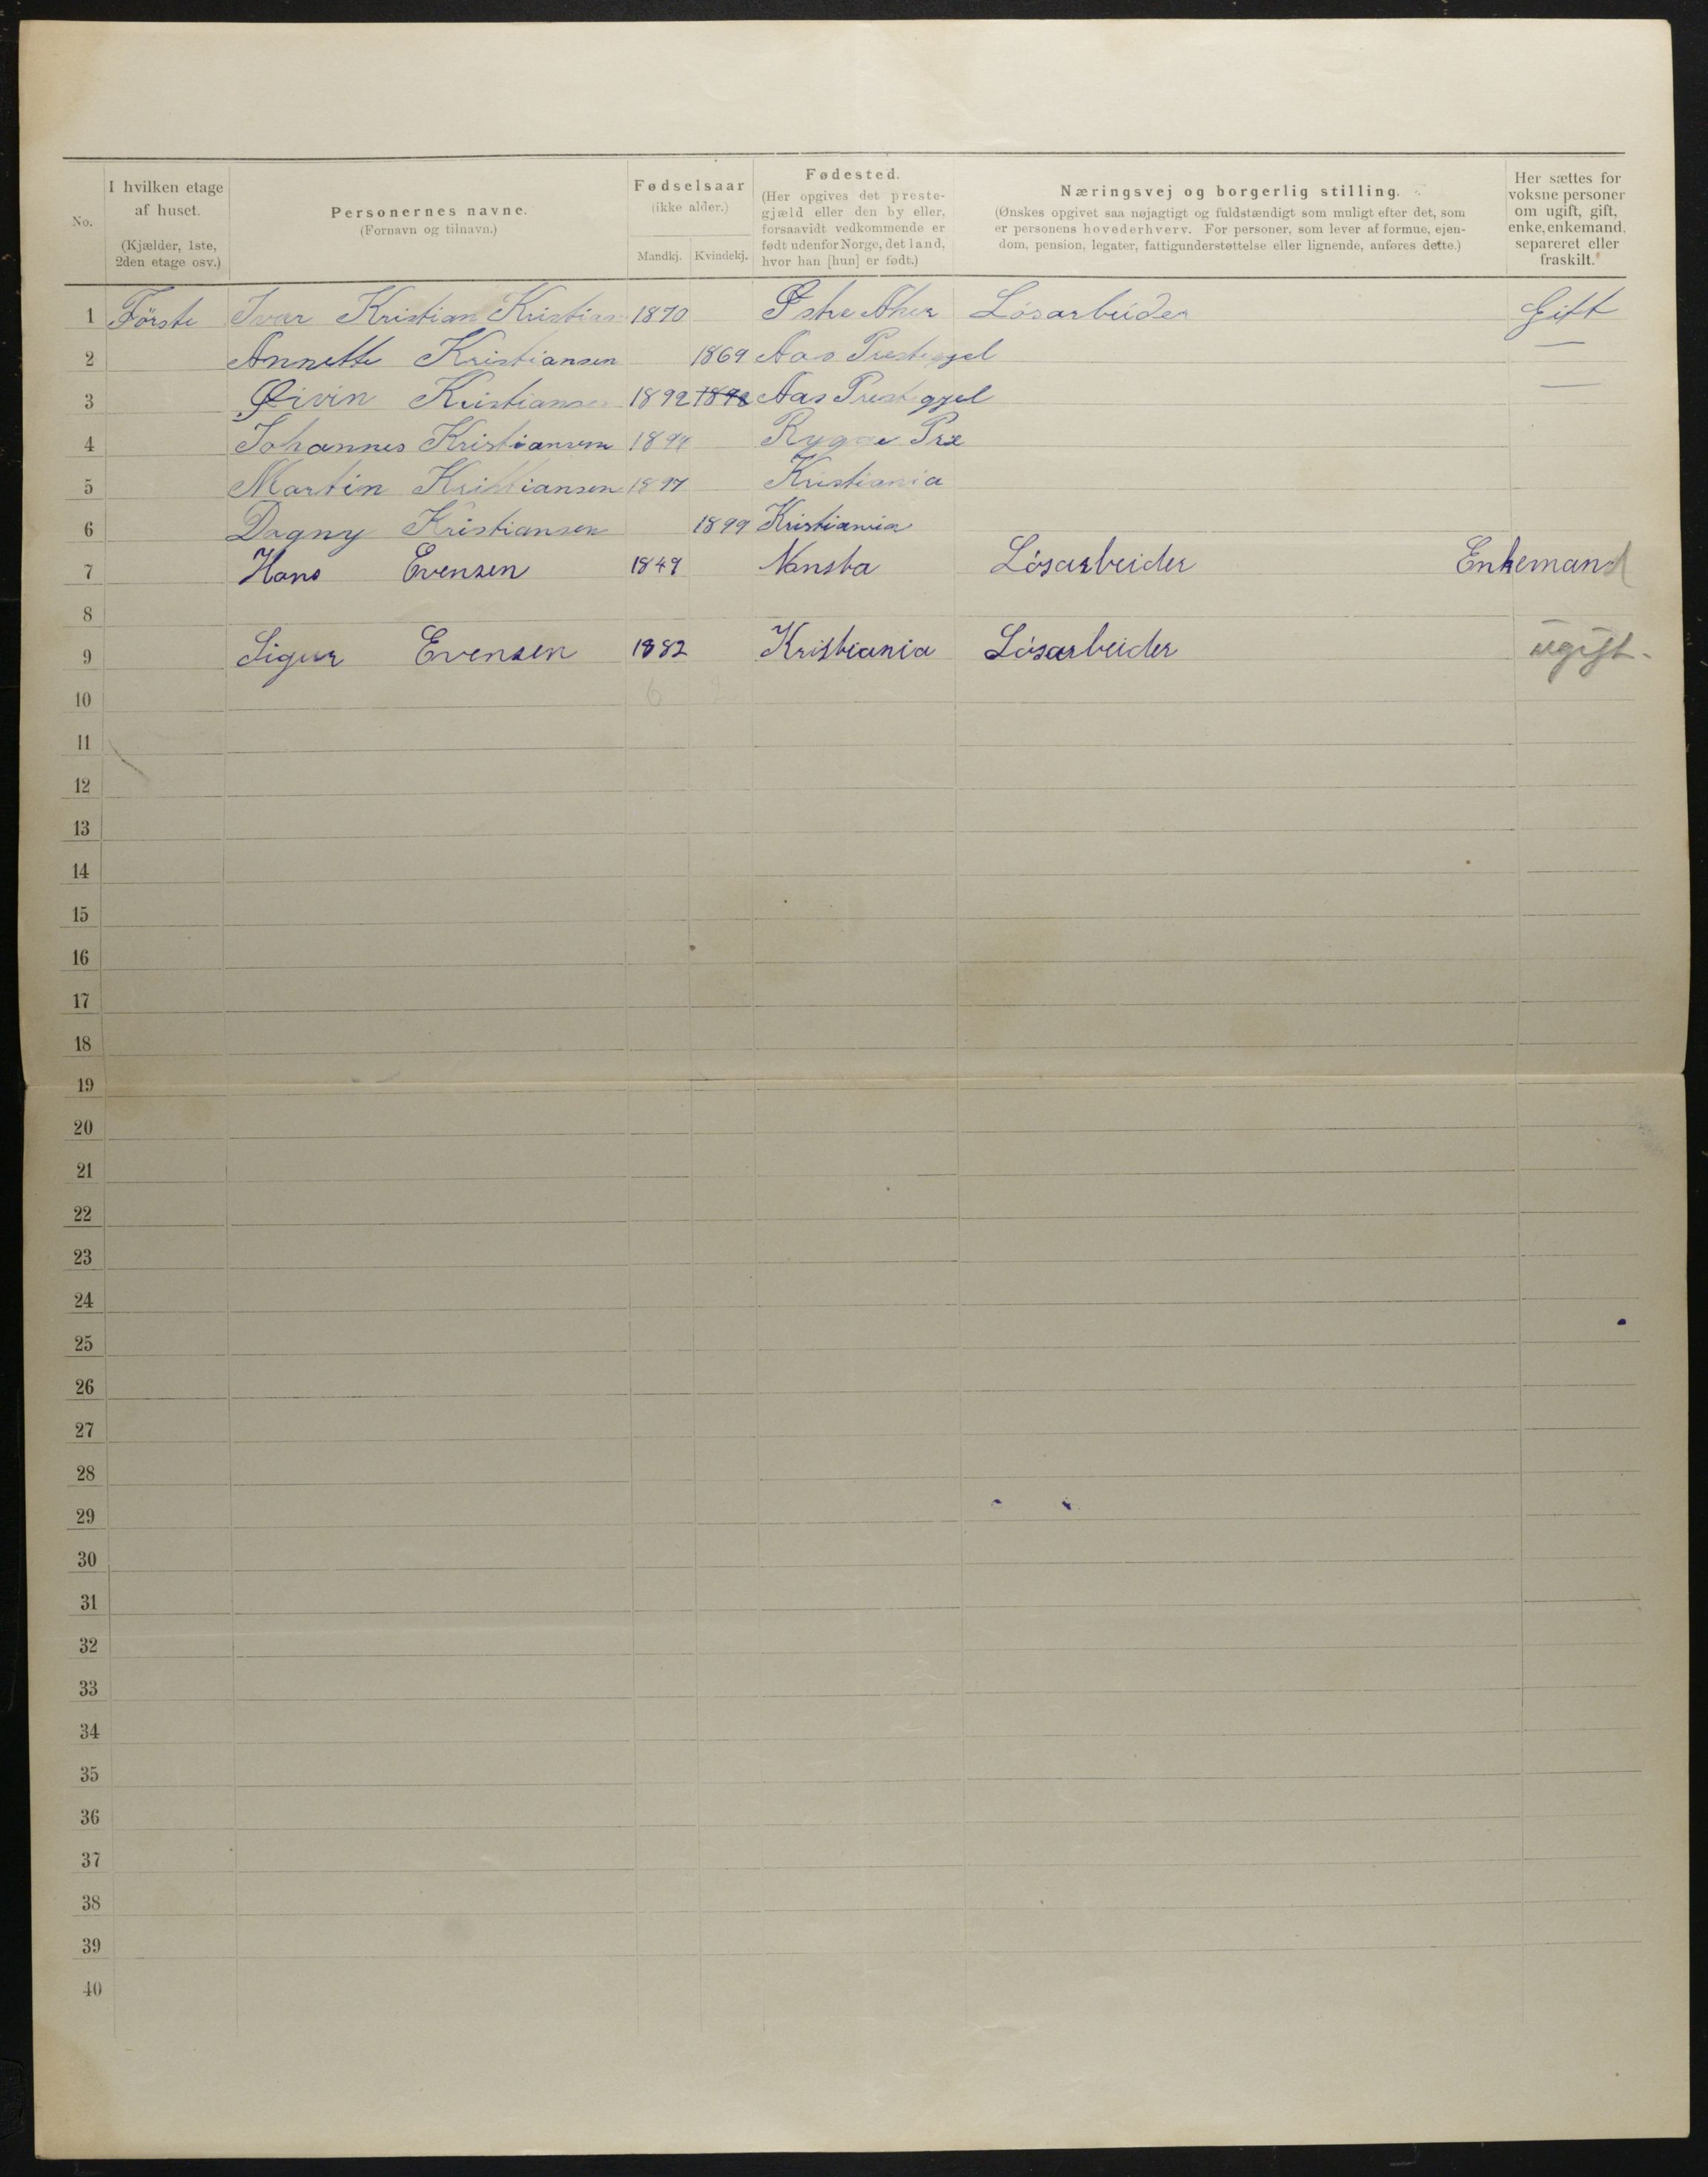 No.
I hvilken etage af huset.
(Kjælder, 1ste, 2den etage osv.)
Personernes navne.
(Fornavn og tilnavn.)
Fødselsaar
(ikke alder.)
Mandkj. Kvindekj.
Fødested.
(Her opgives det preste-
gjæld eller den by eller,
forsaavidt vedkommende er
født udenfor Norge, det land,
hvor han [hun] er født.)
Næringsvej og borgerlig stilling.
(Ønskes opgivet saa nøjagtigt og fuldstændigt som muligt efter det, som
er personens hovederhverv. For personer, som lever af formue, ejen-
dom, pension, legater, fattigunderstøttelse eller lignende, anføres dette.)
Her sættes for
voksne personer
om ugift, gift,
enke, enkemand,
separeret eller
fraskilt.
1 Förste Ivar Kristian Kristian 1870 Østre Aker Løsarbeider Gift
2 Annette Kristiansen 1869 Aas Prestegjel —
3 Øivin Kristiansen 1892 Aas Prestegjel —
4 Johannes Kristiansen Rygge Pre
5 Martin Kristiansen 1897 Kristiania
6 Dagny Kristiansen 1899 Kristiania
7 Hans Evensen 1849 Løsarbeider Enkemand
8
9 Sigur Evensen 1882 Kristiania Løsarbeider ugift.
6 2
10
11
12
13
14
15
16
17
18
19
20
21
22
23
24
25
26
27
28
29
30
31
32
33
34
35
36
37
38
39
40